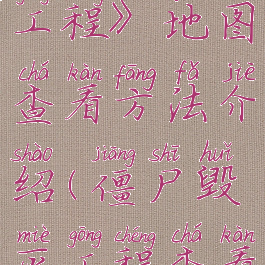 工程》地图
chá kàn fāng fǎ jiè
查看方法介
shào jiāng shī huǐ
绍(僵尸毁
miè gōng chéng chá kàn
灭工程查看